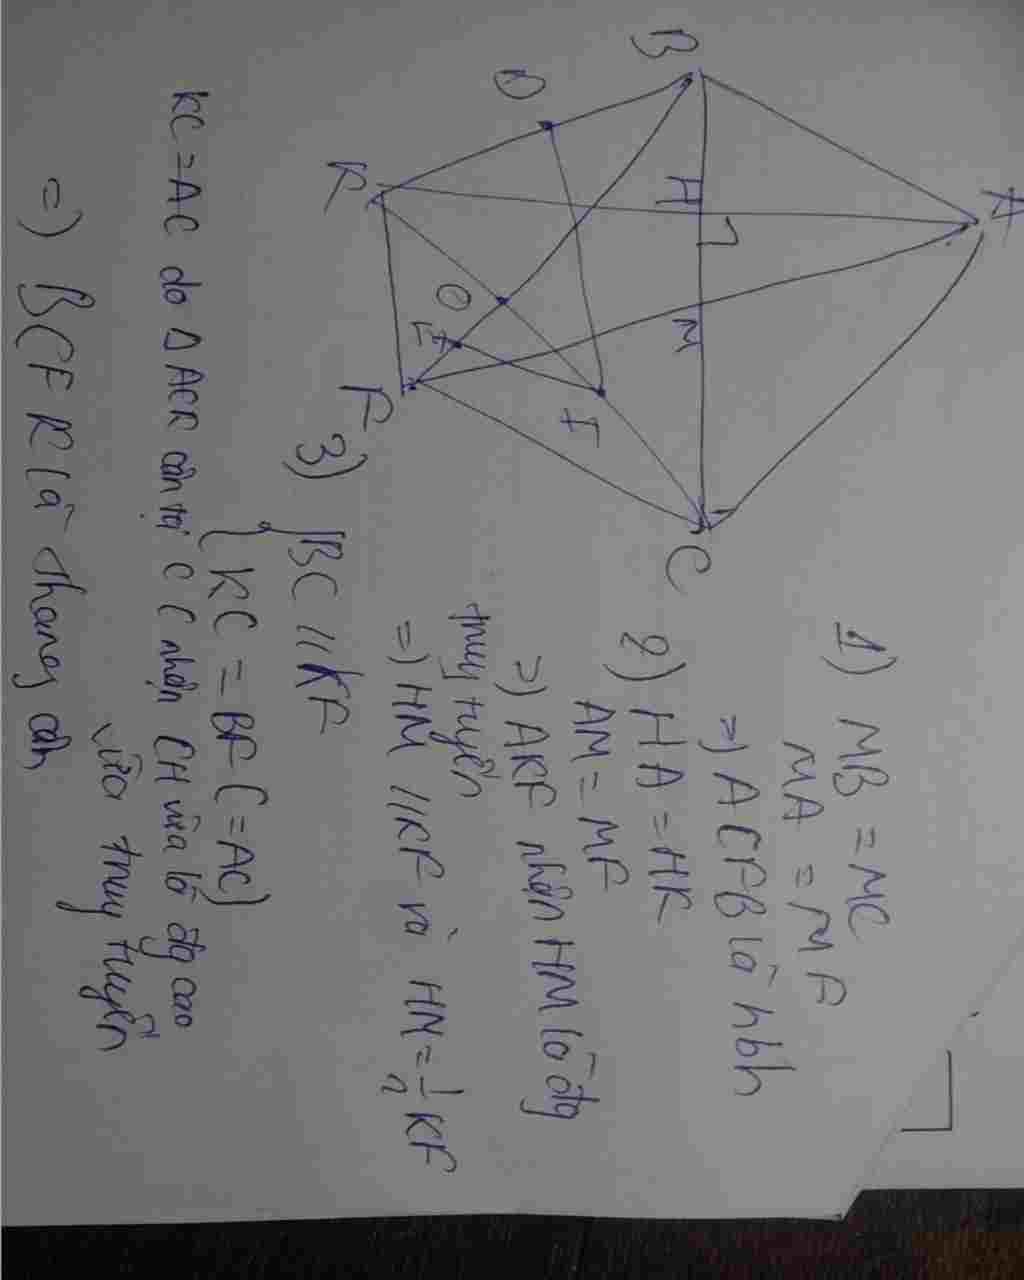 B
D
A
H
K
M
O
E
I
F
C
1) MB = MC
MA = MF
=) ACFB là hbh
2) HA = HK
AM = MF
=) AKF nhận HM là đg
trung tuyến
=) HM // KF và HM = 1/2 KF
3) { BC // KF
KC = BF (= AC)
KC = AC do Δ ACK cân tại C ( nhận CH vừa là đg cao
vừa trung tuyến
=) BCFK là thang cân